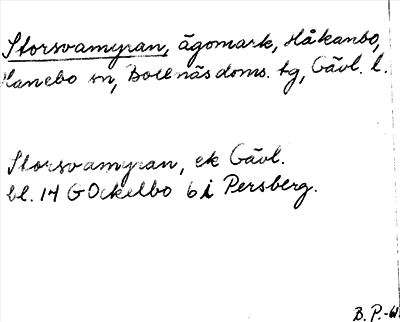 Storsvamyran, ägomark, Håkanbo,
Hanebo sn, Bollnäs doms. tg, Gävl. l.
Storsvamyran, ek Gävl.
bl. 14 G Ockelbo 6 i Persberg.
B. P.-61